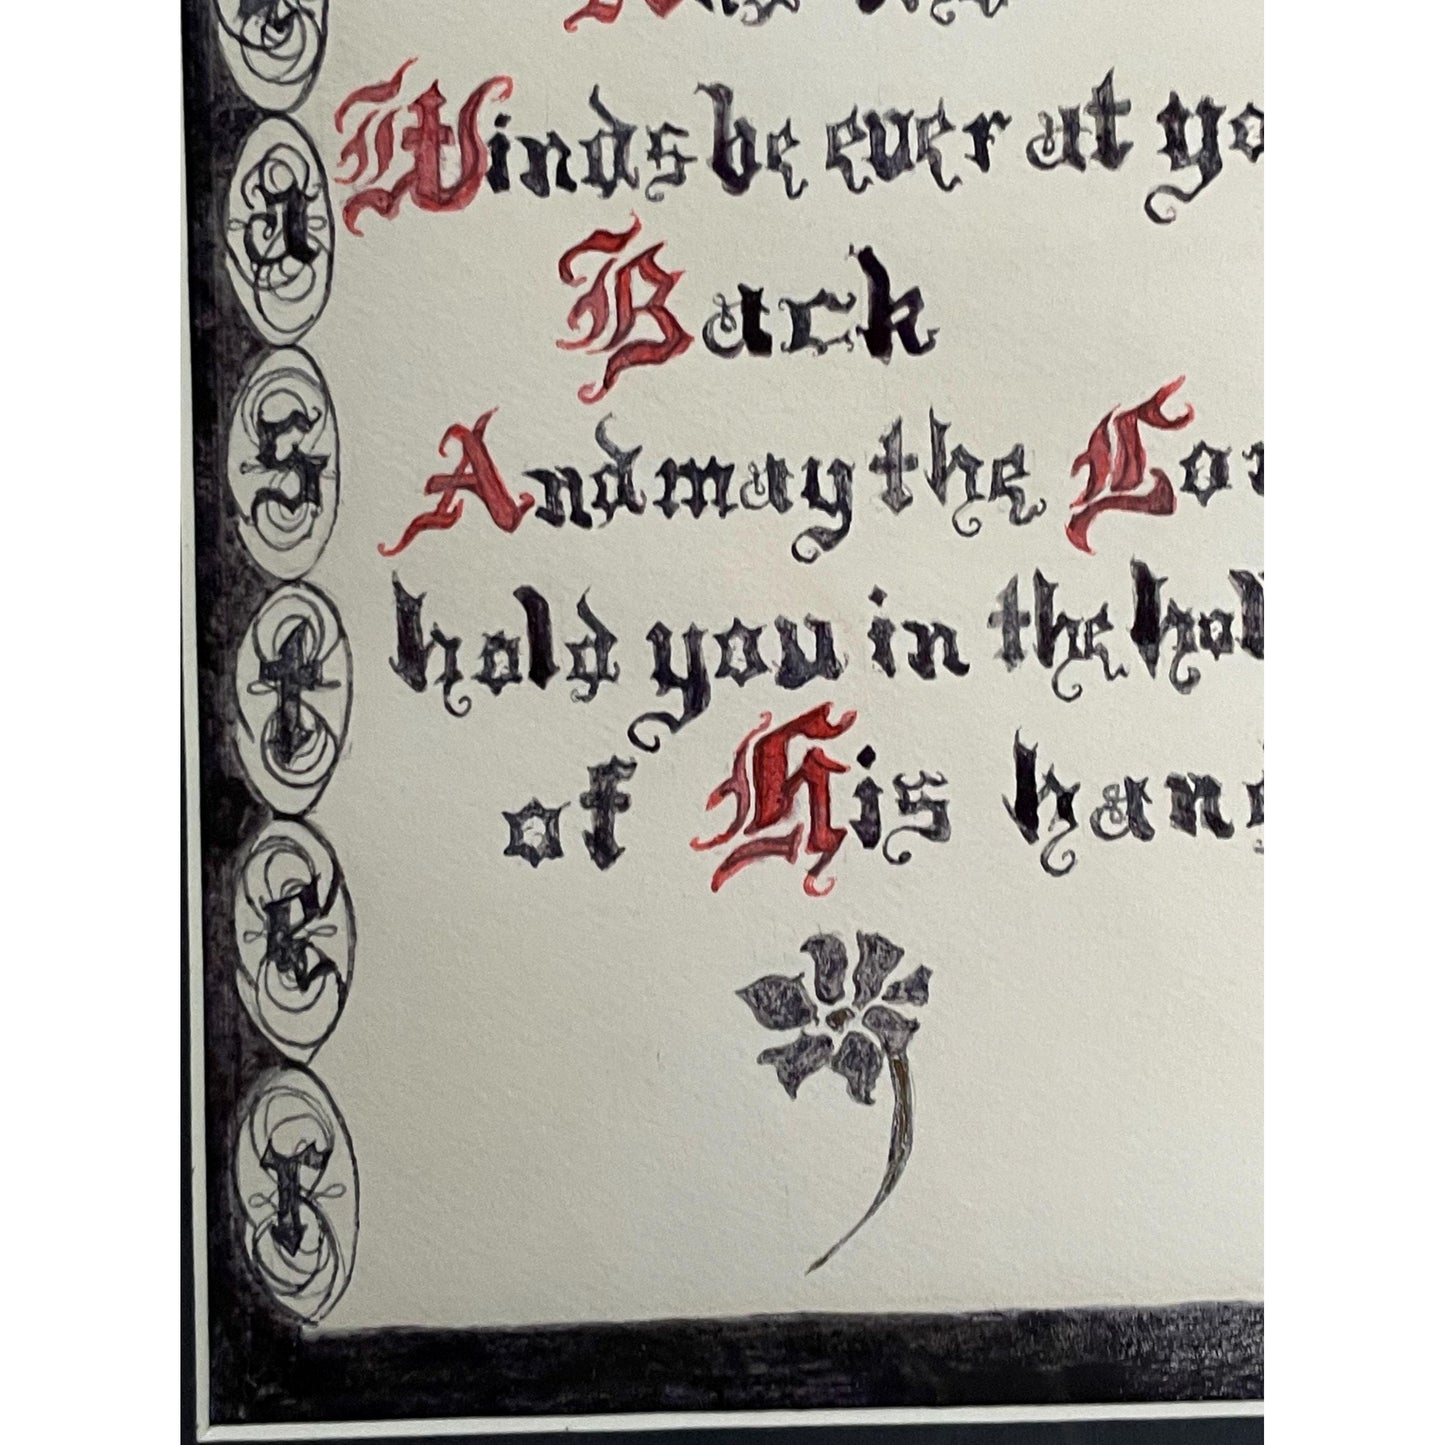 Winds be ever at yo
Back
And may the Lor
hold you in the holl
of His hand
a
s
t
e
r